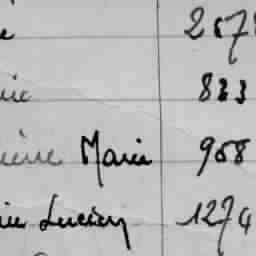 ie 267
rie 833
ière Marie 968
rie Lucien 1274